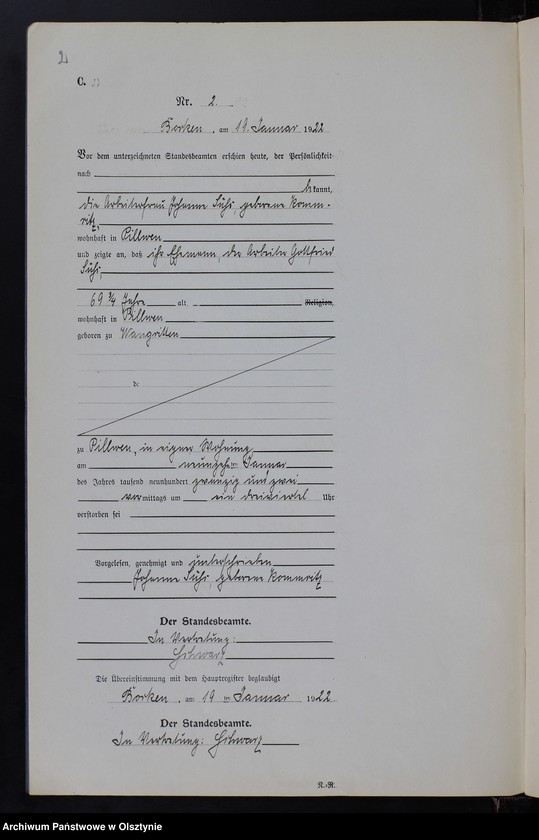 2
C.
Nr. 2.
Borken, am 19. Januar 1922
Vor dem unterzeichneten Standesbeamten erschien heute, der Persönlichkeit
nach
bekannt,
die Arbeiterfrau Johanne Suhs, geborene Komm-
ritz,
wohnhaft in Pillwen
und zeigte an, daß ihr Ehemann, der Arbeiter Gottfried
Suhs,
69 3/4 Jahre alt, Religion,
wohnhaft in Pillwen
geboren zu Wangritten
de
zu Pillwen, in eigner Wohnung
am neunzehnten Januar
des Jahres tausend neunhundert zwanzig und zwei
vormittags um ein dreiviertel Uhr
verstorben sei
Vorgelesen, genehmigt und unterschrieben
Johanne Suhs, geborene Kommritz
Der Standesbeamte.
In Vertretung:
Schwarz
Die Übereinstimmung mit dem Hauptregister beglaubigt
Borken, am 19 ten Januar 1922
Der Standesbeamte.
In Vertretung: Schwarz
N.-R.
Archiwum Państwowe w Olsztynie